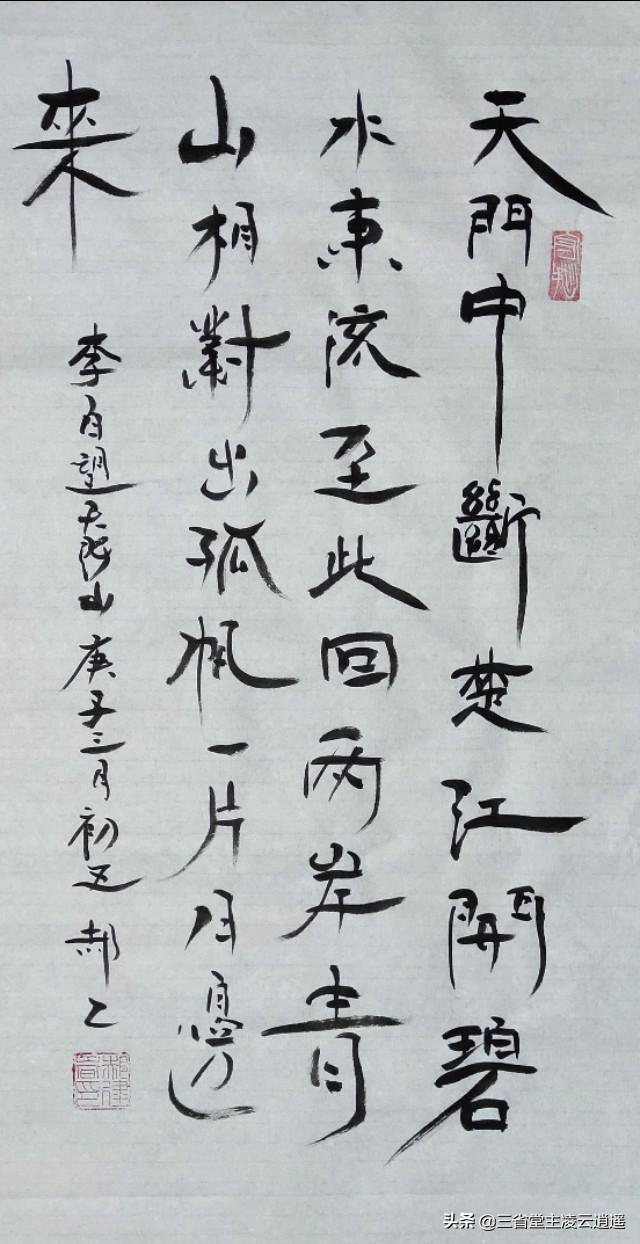 天門中斷楚江開碧
水東流至此回兩岸青
山相對出孤帆一片月邊
來
李白望天門山庚子三月初五郝乙
头条 @三省堂主凌云逍遥